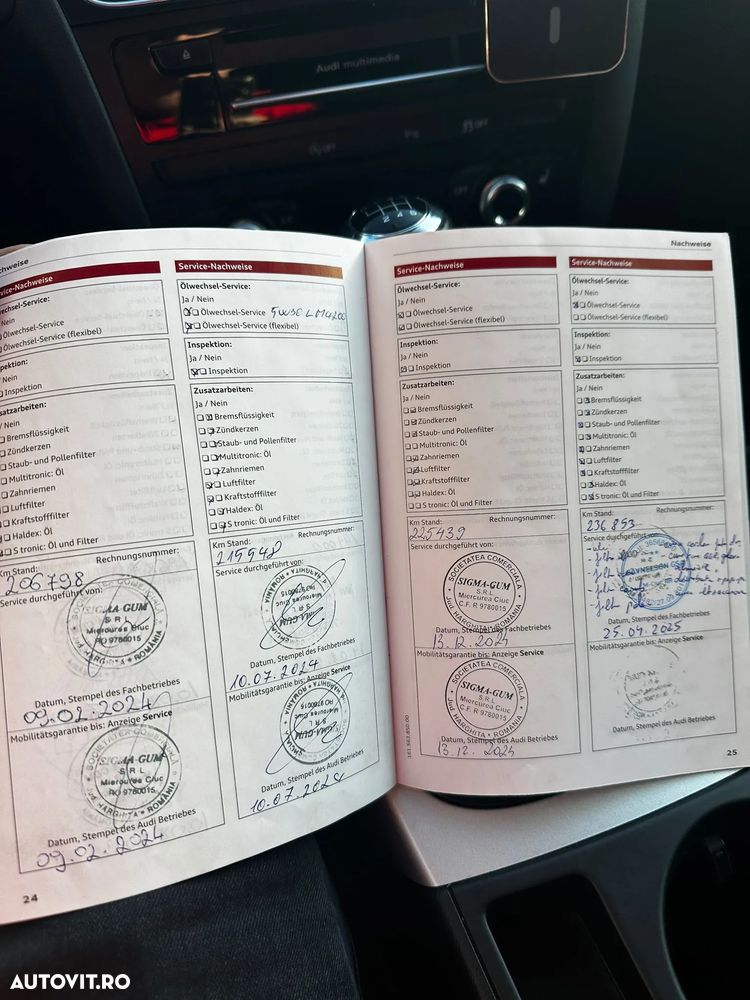 Audi multimedia
chweise
Nachweise
vice-Nachweise
hsel-Service:
Nein
Ölwechsel-Service
Ölwechsel-Service (flexibel)
pektion:
/ Nein
Inspektion
satzarbeiten:
/ Nein
Bremsflüssigkeit
Zündkerzen
Staub- und Pollenfilter
Multitronic: Öl
Zahnriemen
Luftfilter
Kraftstofffilter
Haldex: Öl
S tronic: Öl und Filter
Km Stand:
Rechnungsnummer:
206798
Service durchgeführt von:
SOCIETATEA COMERCIALĂ
SIGMA-GUM
S R L
Miercurea Ciuc
RO 9780015
Jud. HARGHITA • ROMANIA
Datum, Stempel des Fachbetriebes
09.02.2024
Mobilitätsgarantie bis: Anzeige Service
SIGMA-GUM
S R L
Miercurea Ciuc
RO 9780015
Jud. HARGHITA • ROMANIA
Datum, Stempel des Audi Betriebes
09.02.2024
24
Service-Nachweise
Ölwechsel-Service:
Ja / Nein
Ölwechsel-Service 5W30
Ölwechsel-Service (flexibel)
Inspektion:
Ja / Nein
Inspektion
Zusatzarbeiten:
Ja / Nein
Bremsflüssigkeit
Zündkerzen
Staub- und Pollenfilter
Multitronic: Öl
Zahnriemen
Luftfilter
Kraftstofffilter
Haldex: Öl
S tronic: Öl und Filter
Km Stand:
Rechnungsnummer:
215548
Service durchgeführt von:
Datum, Stempel des Fachbetriebes
10.07.2024
Mobilitätsgarantie bis: Anzeige Service
Datum, Stempel des Audi Betriebes
10.07.2024
Service-Nachweise
Ölwechsel-Service:
Ja / Nein
Ölwechsel-Service
Ölwechsel-Service (flexibel)
Inspektion:
Ja / Nein
Inspektion
Zusatzarbeiten:
Ja / Nein
Bremsflüssigkeit
Zündkerzen
Staub- und Pollenfilter
Multitronic: Öl
Zahnriemen
Luftfilter
Kraftstofffilter
Haldex: Öl
S tronic: Öl und Filter
Km Stand:
Rechnungsnummer:
225439
Service durchgeführt von:
SOCIETATEA COMERCIALĂ
SIGMA-GUM
S.R.L.
Miercurea Ciuc
C.F. R 9780015
Datum, Stempel des Fachbetriebes
13.12.2024
Mobilitätsgarantie bis: Anzeige Service
SOCIETATEA COMERCIALĂ
SIGMA-GUM
S.R.L.
Miercurea Ciuc
C.F. R 9780015
Jud. HARGHITA • ROMANIA
Datum, Stempel des Audi Betriebes
13.12.2024
161.563.850.00
Service-Nachweise
Ölwechsel-Service:
Ja / Nein
Ölwechsel-Service
Ölwechsel-Service (flexibel)
Inspektion:
Ja / Nein
Inspektion
Zusatzarbeiten:
Ja / Nein
Bremsflüssigkeit
Zündkerzen
Staub- und Pollenfilter
Multitronic: Öl
Zahnriemen
Luftfilter
Kraftstofffilter
Haldex: Öl
S tronic: Öl und Filter
Km Stand:
Rechnungsnummer:
236 853
Service durchgeführt von:
Datum, Stempel des Fachbetriebes
25.04.2025
Mobilitätsgarantie bis: Anzeige Service
Datum, Stempel des Audi Betriebes
25
AUTOVIT.RO